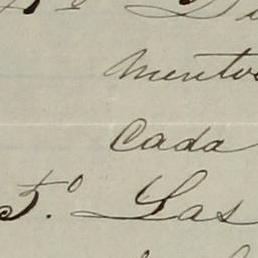 mentos
cada
5.º Las